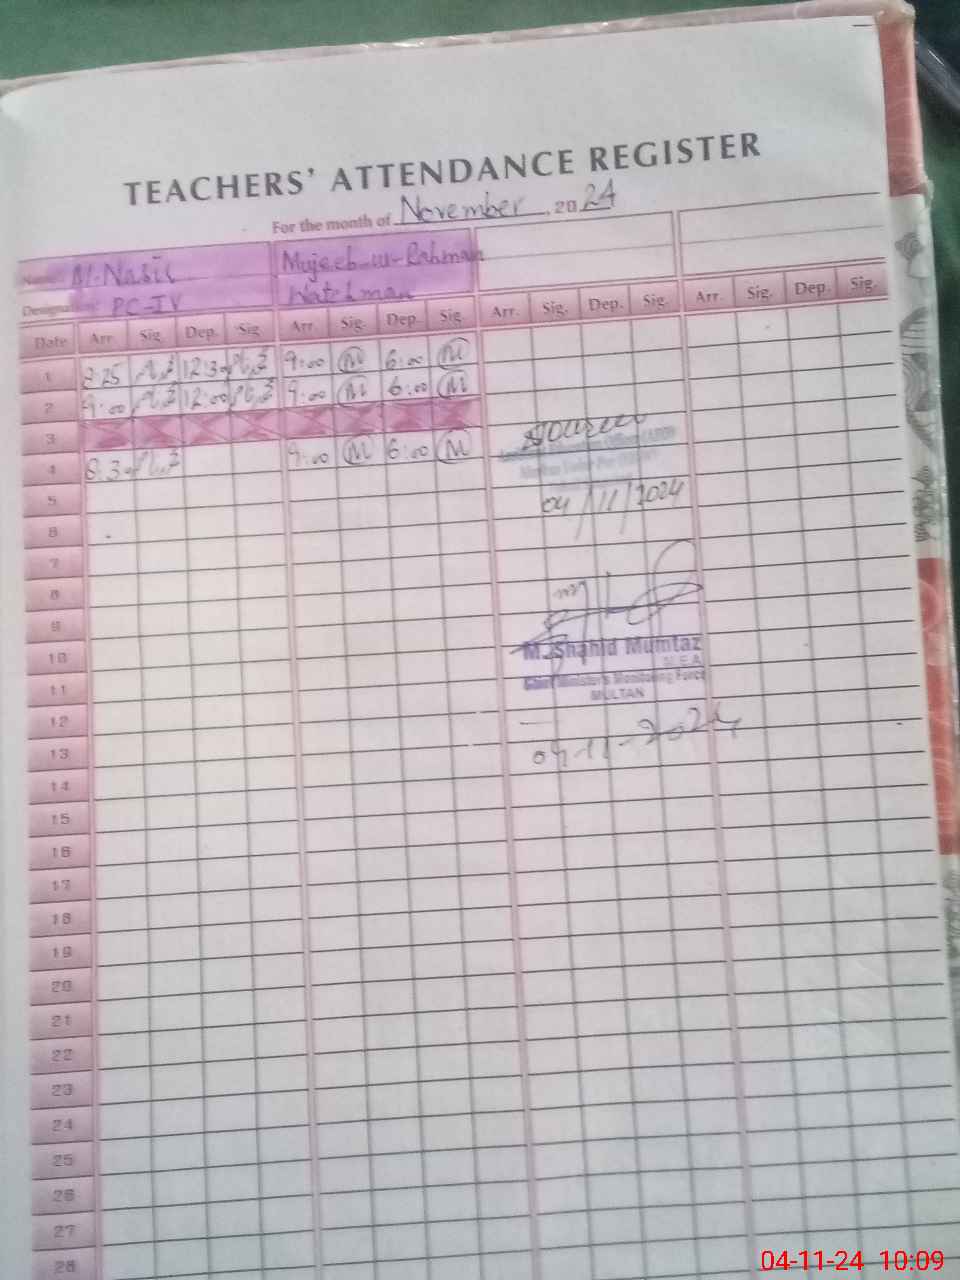 TEACHERS' ATTENDANCE REGISTER
For the month of November, 2024
Name: M. Nasir Mujeeb-ur-Rahman
Designation: PC-IV Watchman
Date Arr. Sig. Dep. Sig. Arr. Sig. Dep. Sig. Arr. Sig. Dep. Sig. Arr. Sig. Dep. Sig.
1 8:25 12:30 9:00 M 6:00 M
2 9:00 12:00 9:00 M 6:00 M
3
4 8:30 9:00 M 6:00 M
5
04/11/2024
6
7
8
9
10 M. Shahid Mumtaz
M.E.A
11 Chief Minister's Monitoring Force
MULTAN
12
13 04-11-2024
14
15
16
17
18
19
20
21
22
23
24
25
26
27
28
04-11-24 10:09